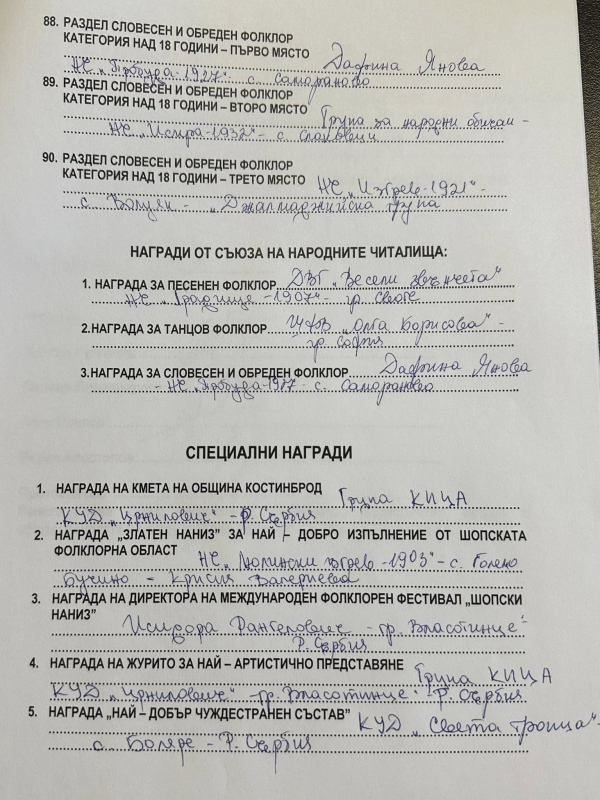 88. РАЗДЕЛ СЛОВЕСЕН И ОБРЕДЕН ФОЛКЛОР
КАТЕГОРИЯ НАД 18 ГОДИНИ – ПЪРВО МЯСТО Дафрина Янова
НЧ "Пробуда-1927" с. Самораново
89. РАЗДЕЛ СЛОВЕСЕН И ОБРЕДЕН ФОЛКЛОР
КАТЕГОРИЯ НАД 18 ГОДИНИ – ВТОРО МЯСТО Група за народни обичаи -
НЧ "Искра-1932" - с. Слаковци
90. РАЗДЕЛ СЛОВЕСЕН И ОБРЕДЕН ФОЛКЛОР
КАТЕГОРИЯ НАД 18 ГОДИНИ – ТРЕТО МЯСТО НЧ "Изгрев-1921" -
с. Волуяк - "Джамалджийска група
НАГРАДИ ОТ СЪЮЗА НА НАРОДНИТЕ ЧИТАЛИЩА:
1. НАГРАДА ЗА ПЕСЕНЕН ФОЛКЛОР ДВГ "Весели звънчета"
НЧ "Градище-1907" - гр. Своге
2. НАГРАДА ЗА ТАНЦОВ ФОЛКЛОР "Олга Борисова" -
гр. София
3. НАГРАДА ЗА СЛОВЕСЕН И ОБРЕДЕН ФОЛКЛОР Дафрина Янова
- НЧ с. Самораново
СПЕЦИАЛНИ НАГРАДИ
1. НАГРАДА НА КМЕТА НА ОБЩИНА КОСТИНБРОД Група КИЦА
КУД "Црнилович" - Р. Сърбия
2. НАГРАДА „ЗЛАТЕН НАНИЗ” ЗА НАЙ – ДОБРО ИЗПЪЛНЕНИЕ ОТ ШОПСКАТА
ФОЛКЛОРНА ОБЛАСТ НЧ "Люлински изгрев-1903" - с. Голямо
Бучино - Крисия Валериева
3. НАГРАДА НА ДИРЕКТОРА НА МЕЖДУНАРОДЕН ФОЛКЛОРЕН ФЕСТИВАЛ „ШОПСКИ
НАНИЗ” Исидора Рангелович - гр. Власотинце -
Р. Сърбия
4. НАГРАДА НА ЖУРИТО ЗА НАЙ – АРТИСТИЧНО ПРЕДСТАВЯНЕ Група КИЦА
КУД "Црнилович" - гр. Власотинце - Р. Сърбия
5. НАГРАДА „НАЙ – ДОБЪР ЧУЖДЕСТРАНЕН СЪСТАВ” КУД "Света троица" -
с. Боляре - Р. Сърбия